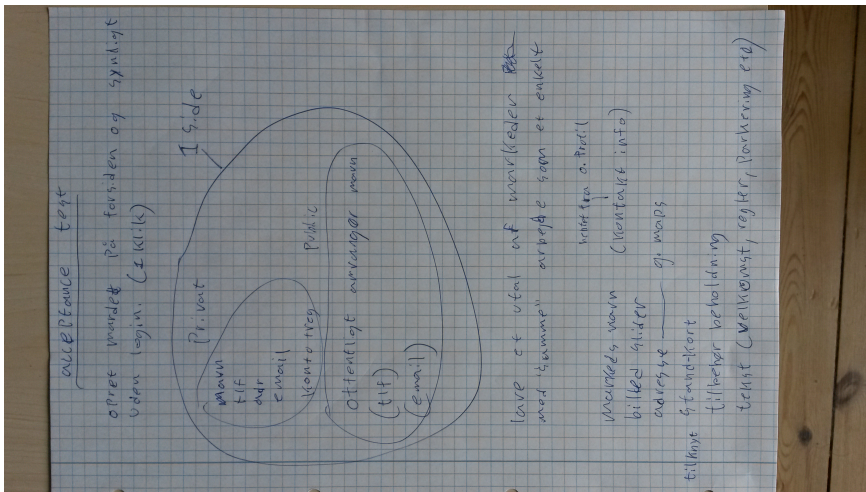 acceptance test
opret marked på forsiden og synligt
uden login. (1 klik)
1 side
Privat
navn
tlf
adr
email
konto+reg
Public
offentligt arrangør navn
(tlf)
(email)
lave et utal af markeder
med "samme" arbejde som et enkelt
hentet fra o. Profil
markedsnavn (kontakt info)
billed slider
adresse — g. maps
tilknyt stand-kort
tilbehør beholdning
tekst (velkomst, regler, parkering etc)